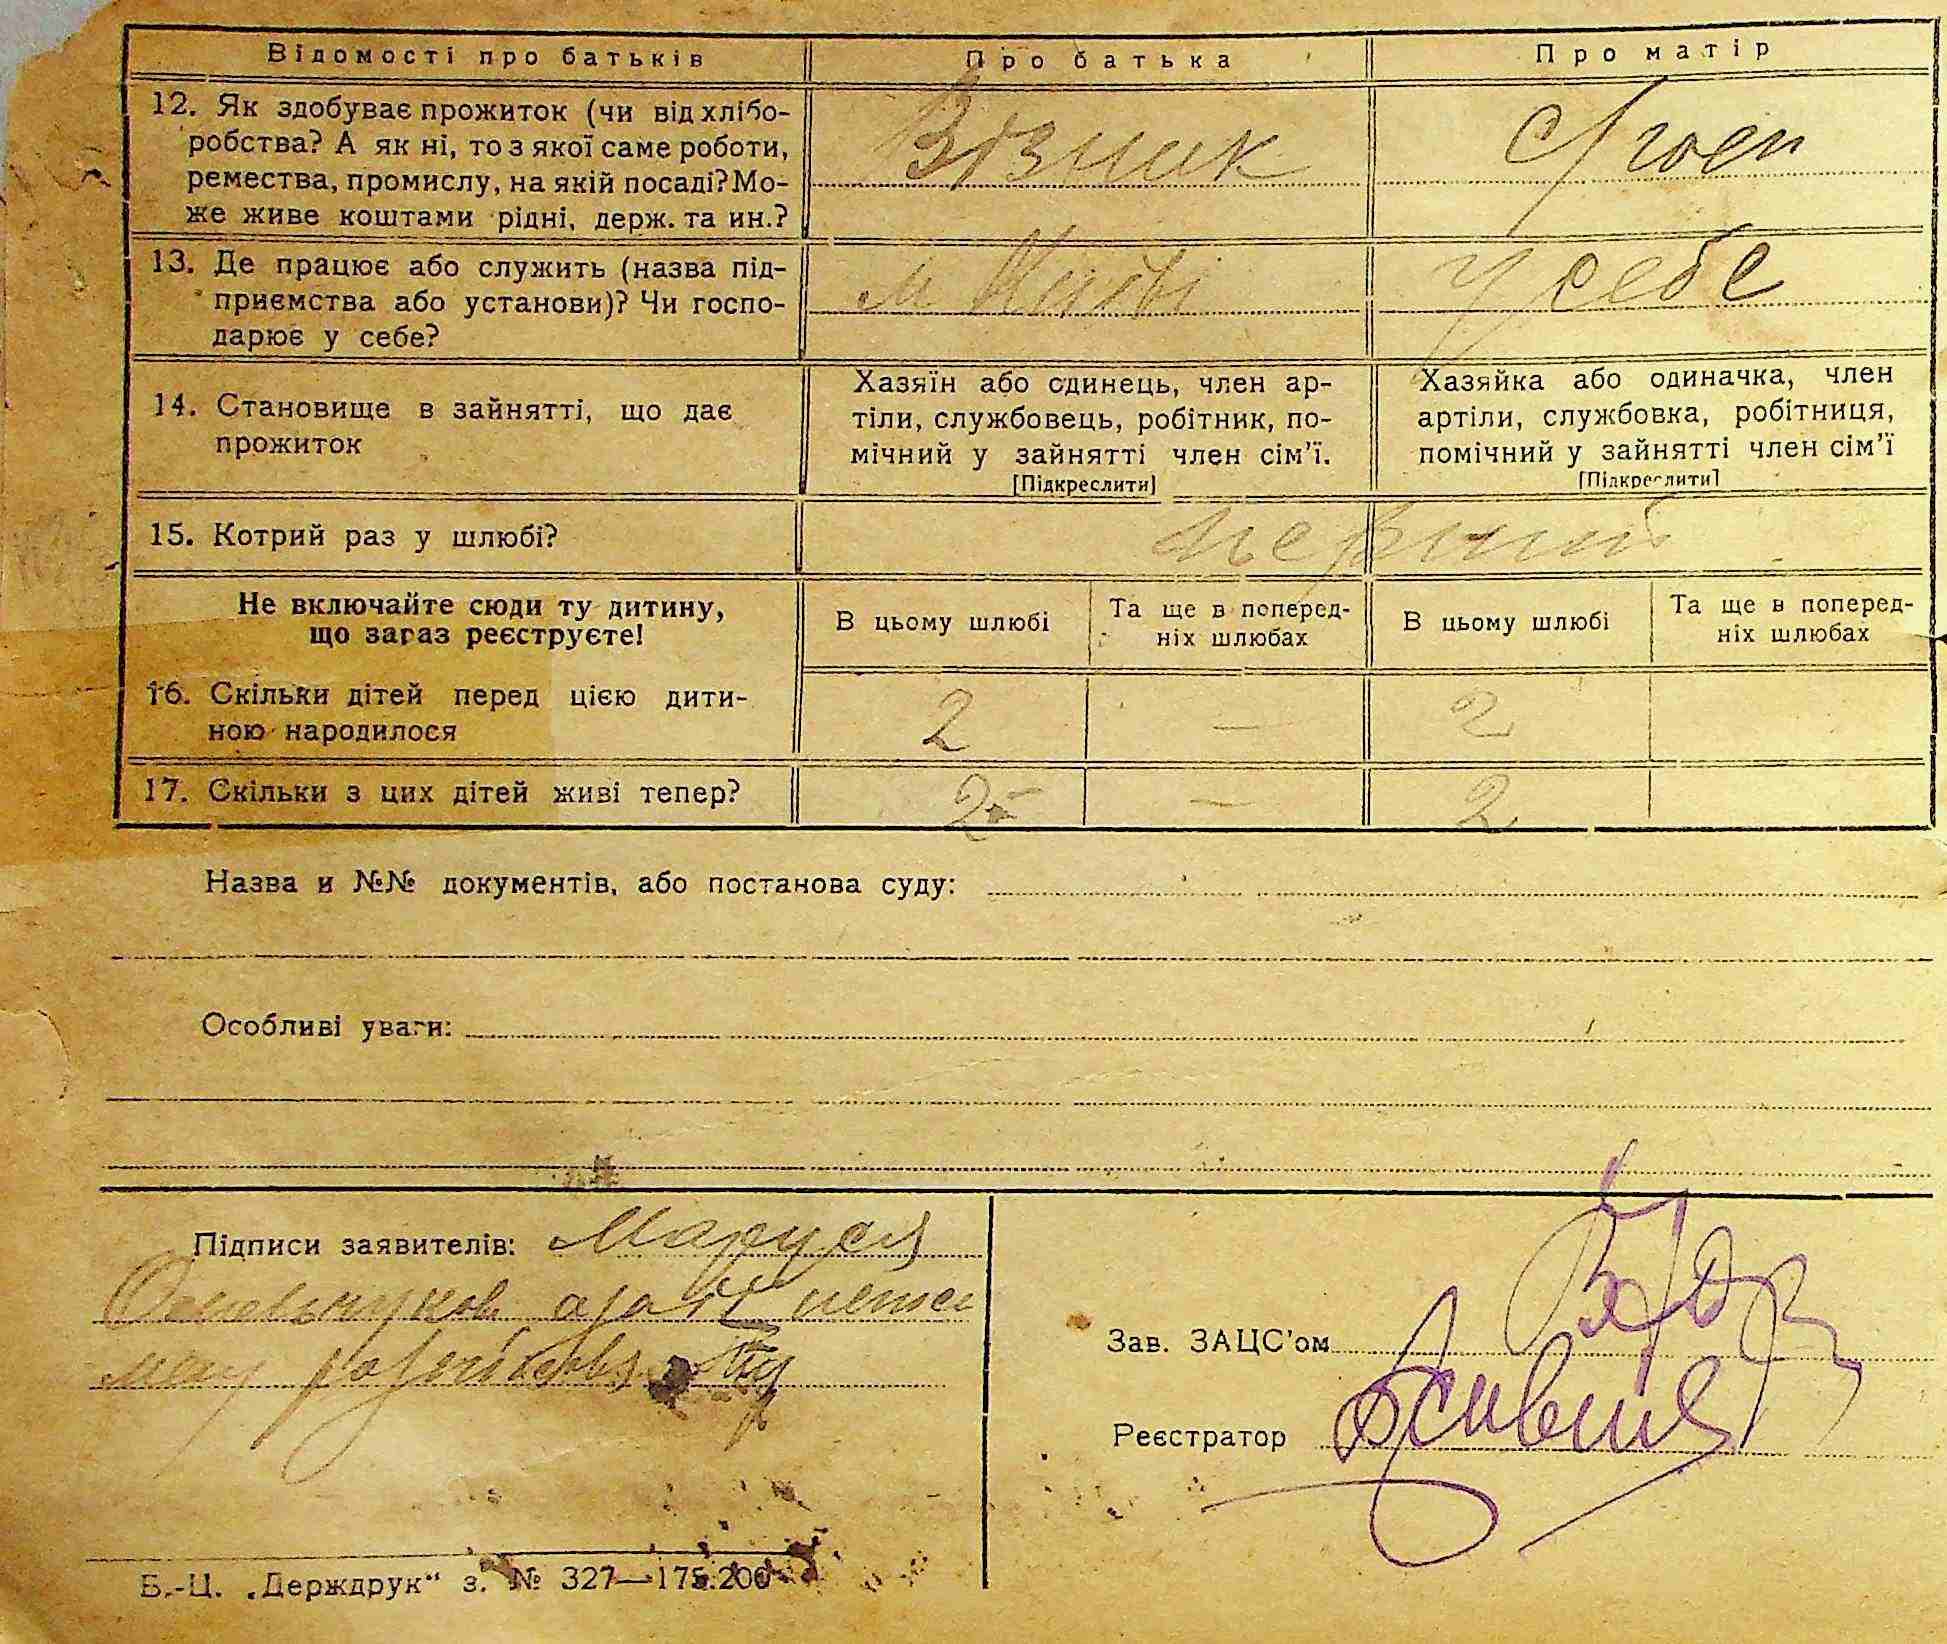 Відомості про батьків Про батька Про матір
12. Як здобуває прожиток (чи від хлібо-
робства? А як ні, то з якої саме роботи,
ремества, промислу, на якій посаді? Мо-
же живе коштами рідні, держ. та ин.?
Візник
13. Де працює або служить (назва під-
приємства або установи)? Чи госпо-
дарює у себе?
м Київі
у себе
14. Становище в зайнятті, що дає
прожиток
Хазяїн або одинець, член ар-
тіли, службовець, робітник, по-
мічний у зайнятті член сім'ї.
[Підкреслити]
Хазяйка або одиначка, член
артіли, службовка, робітниця,
помічний у зайнятті член сім'ї
[Підкреслити]
15. Котрий раз у шлюбі?
Не включайте сюди ту дитину,
що зараз реєструєте!
В цьому шлюбі
Та ще в поперед-
ніх шлюбах
В цьому шлюбі
Та ще в поперед-
ніх шлюбах
16. Скільки дітей перед цією дити-
ною народилося
2 — 2
17. Скільки з цих дітей живі тепер?
2 — 2
Назва и №№ документів, або постанова суду:
Особливі уваги:
Підписи заявителів: Маруся
Зав. ЗАЦС'ом
Реєстратор
Б.-Ц. „Держдрук“ з. № 327—175.200